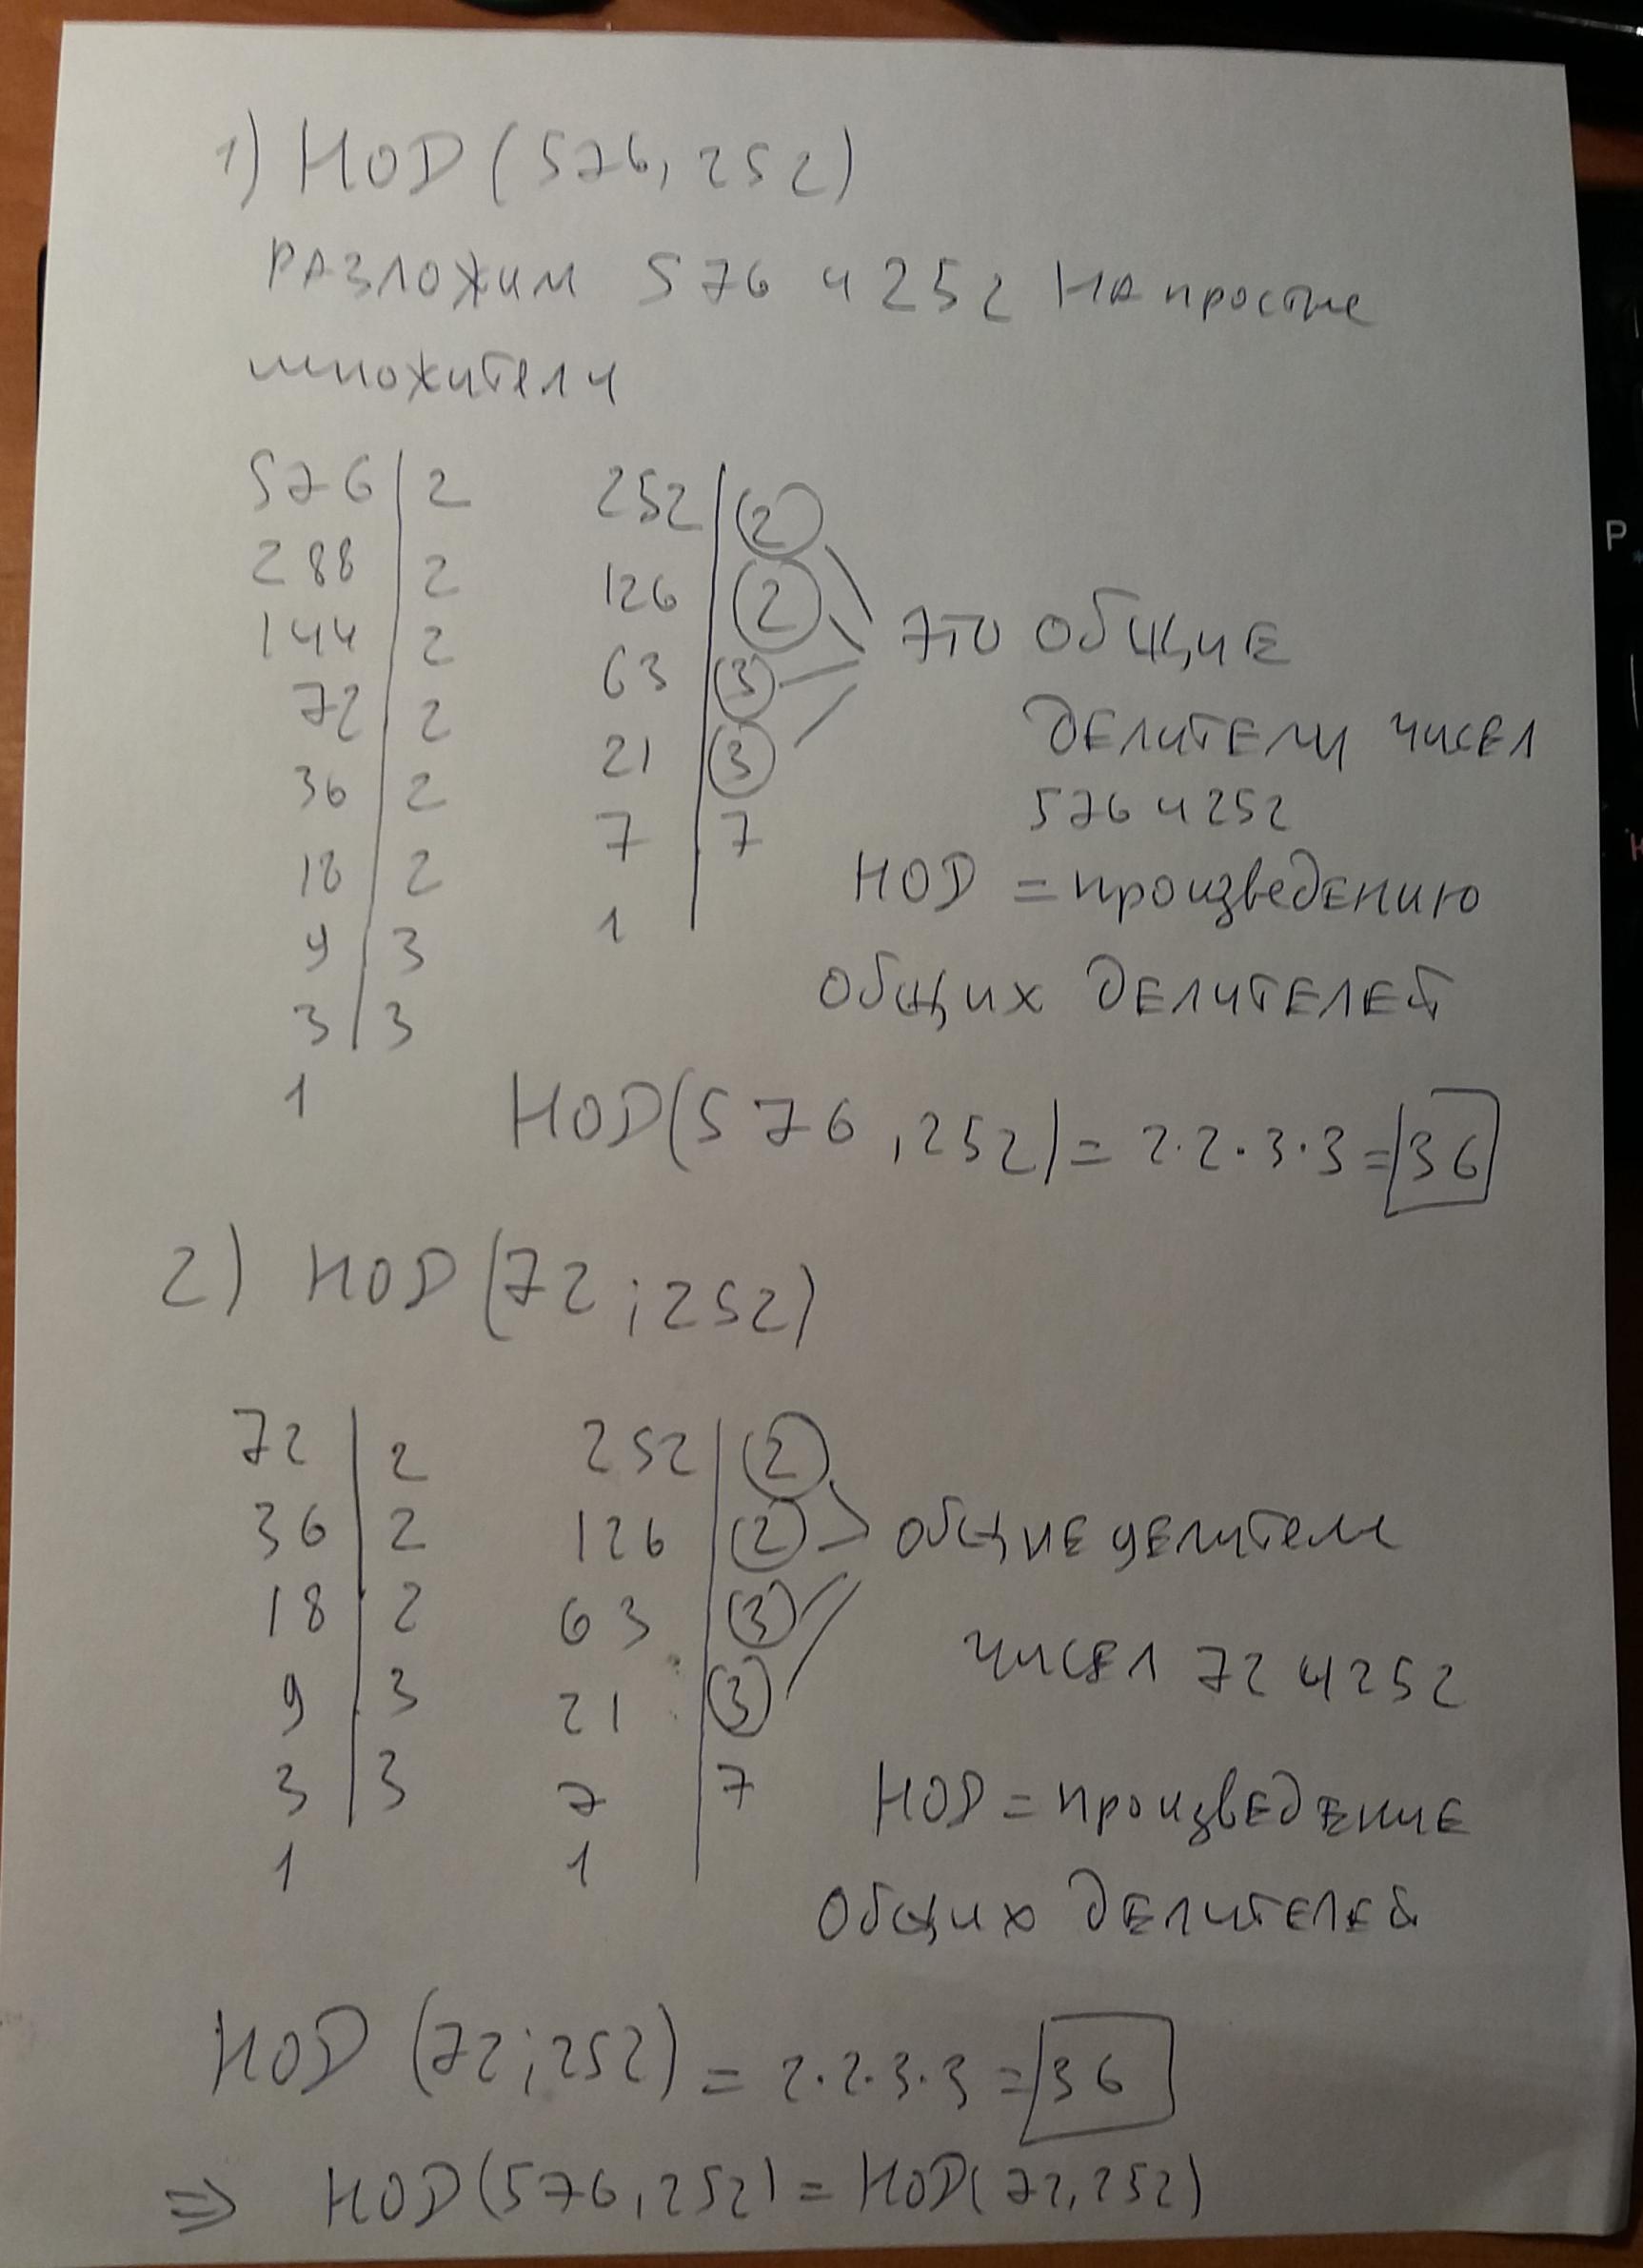 1) НОД (576, 252)
РАЗЛОЖИМ 576 и 252 НА простые
множители
576 | 2 252 | 2
288 | 2 126 | 2
144 | 2 63 | 3
72 | 2 21 | 3
36 | 2 7 | 7
18 | 2 1
9 | 3
3 | 3
1
это общие
делители чисел
576 и 252
НОД = произведению
общих делителей
НОД(576, 252) = 2·2·3·3 = 36
2) НОД (72; 252)
72 | 2 252 | 2
36 | 2 126 | 2
18 | 2 63 | 3
9 | 3 21 | 3
3 | 3 7 | 7
1 1
общие делители
чисел 72 и 252
НОД = произведение
общих делителей
НОД (72; 252) = 2·2·3·3 = 36
⇒ НОД(576, 252) = НОД(72, 252)
P